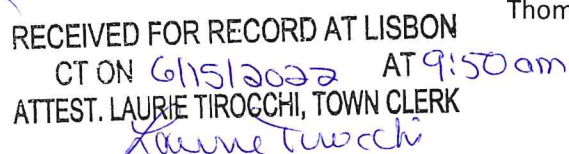 Thom
RECEIVED FOR RECORD AT LISBON
CT ON 6/15/2022 AT 9:50 am
ATTEST. LAURIE TIROCCHI, TOWN CLERK
Laurie Tirocchi